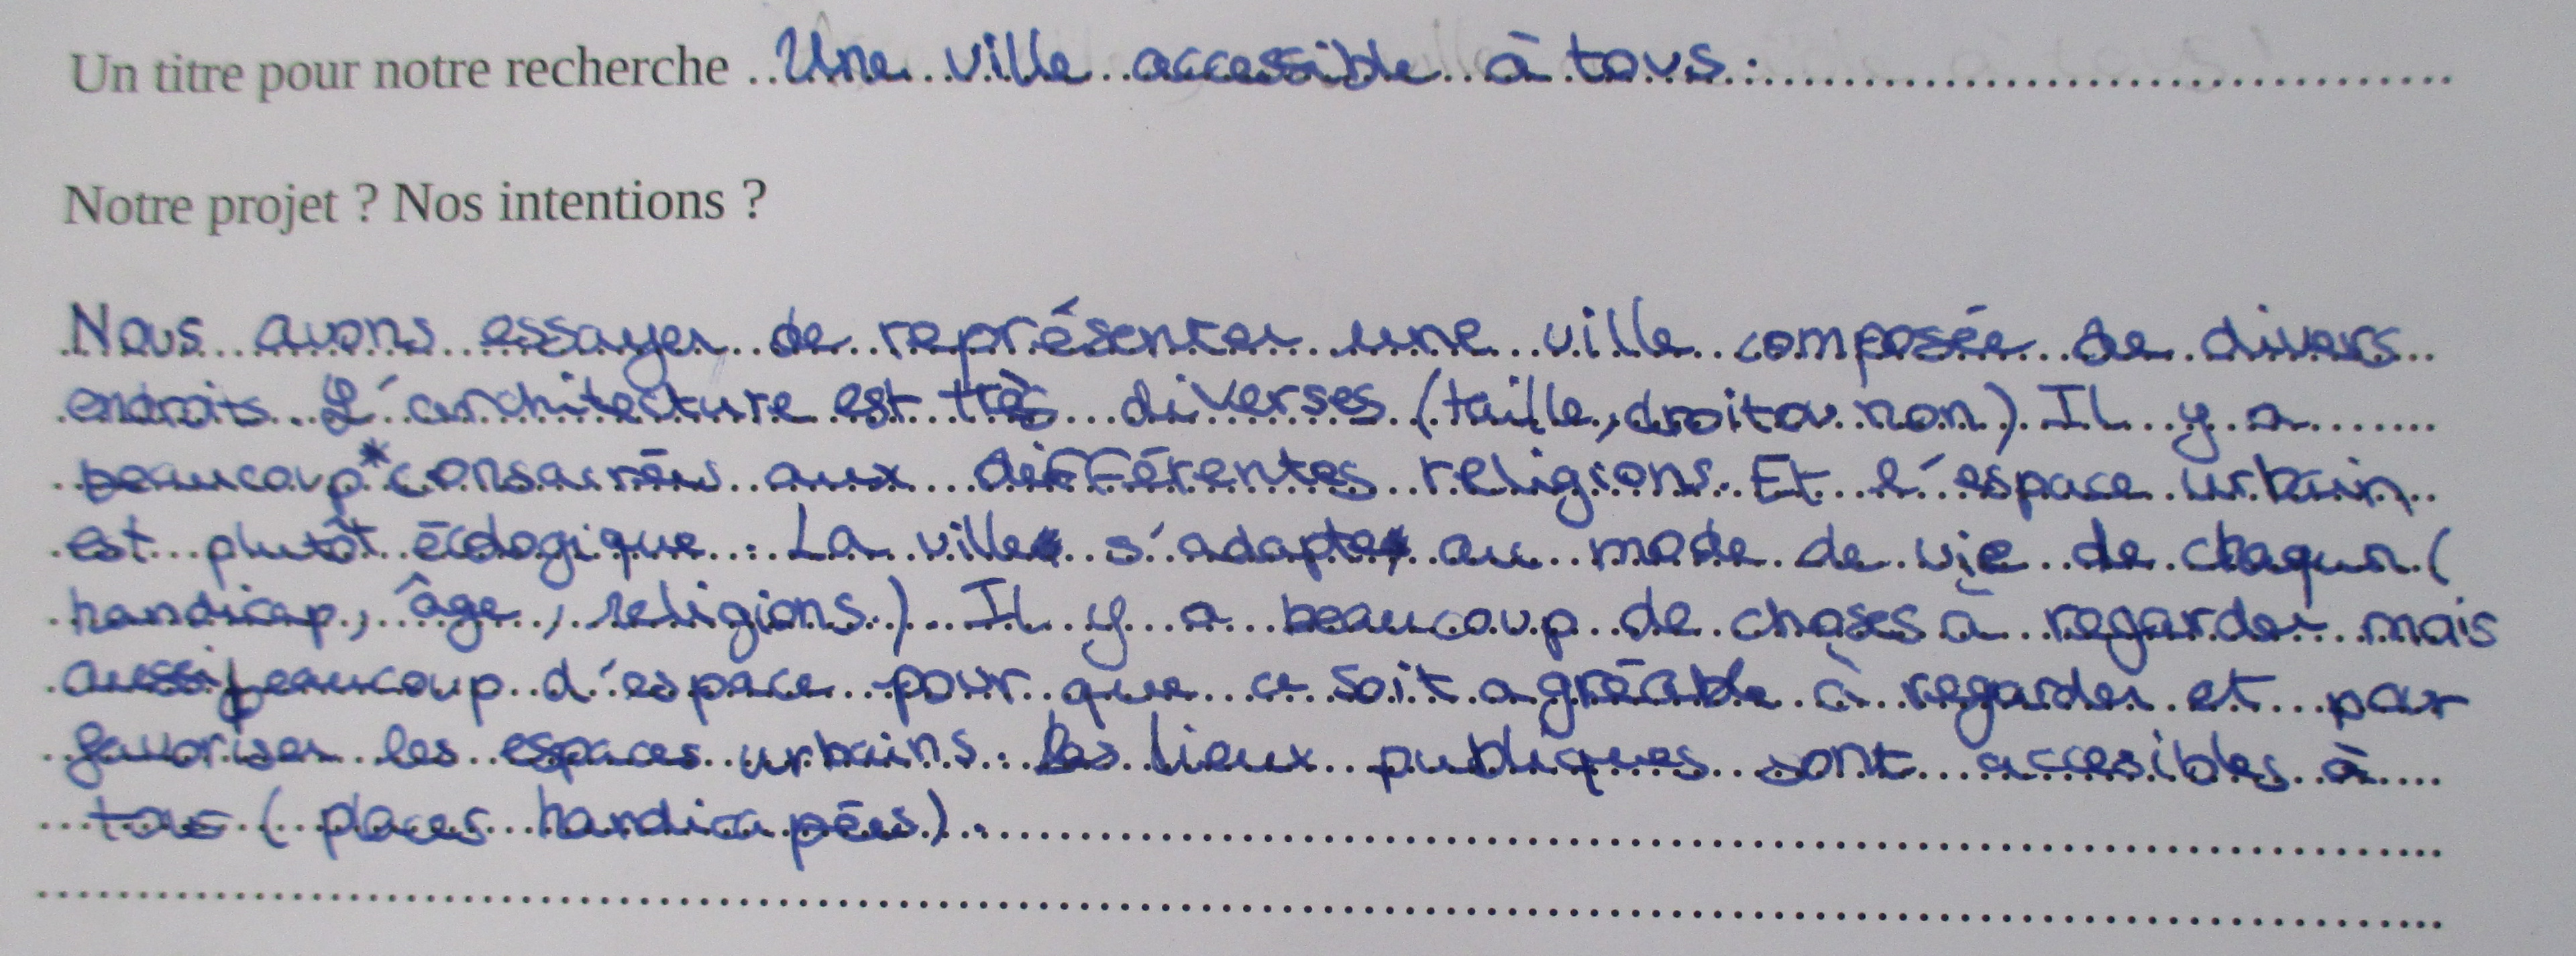 Un titre pour notre recherche Une ville accessible à tous.
Notre projet ? Nos intentions ?
Nous avons essayer de représenter une ville composée de divers
endroits. L'architecture est très diverses (taille, droit ou non). Il y a
beaucoup* consacrées aux différentes religions. Et l'espace urbain
est plutôt écologique. La ville s'adapte au mode de vie de chaqun (
handicap, âge, religions). Il y a beaucoup de choses à regarder mais
aussi beaucoup d'espace pour que ce soit agréable à regarder et par
favoriser les espaces urbains. Les lieux publiques sont accesibles à
tous (places handicapées).